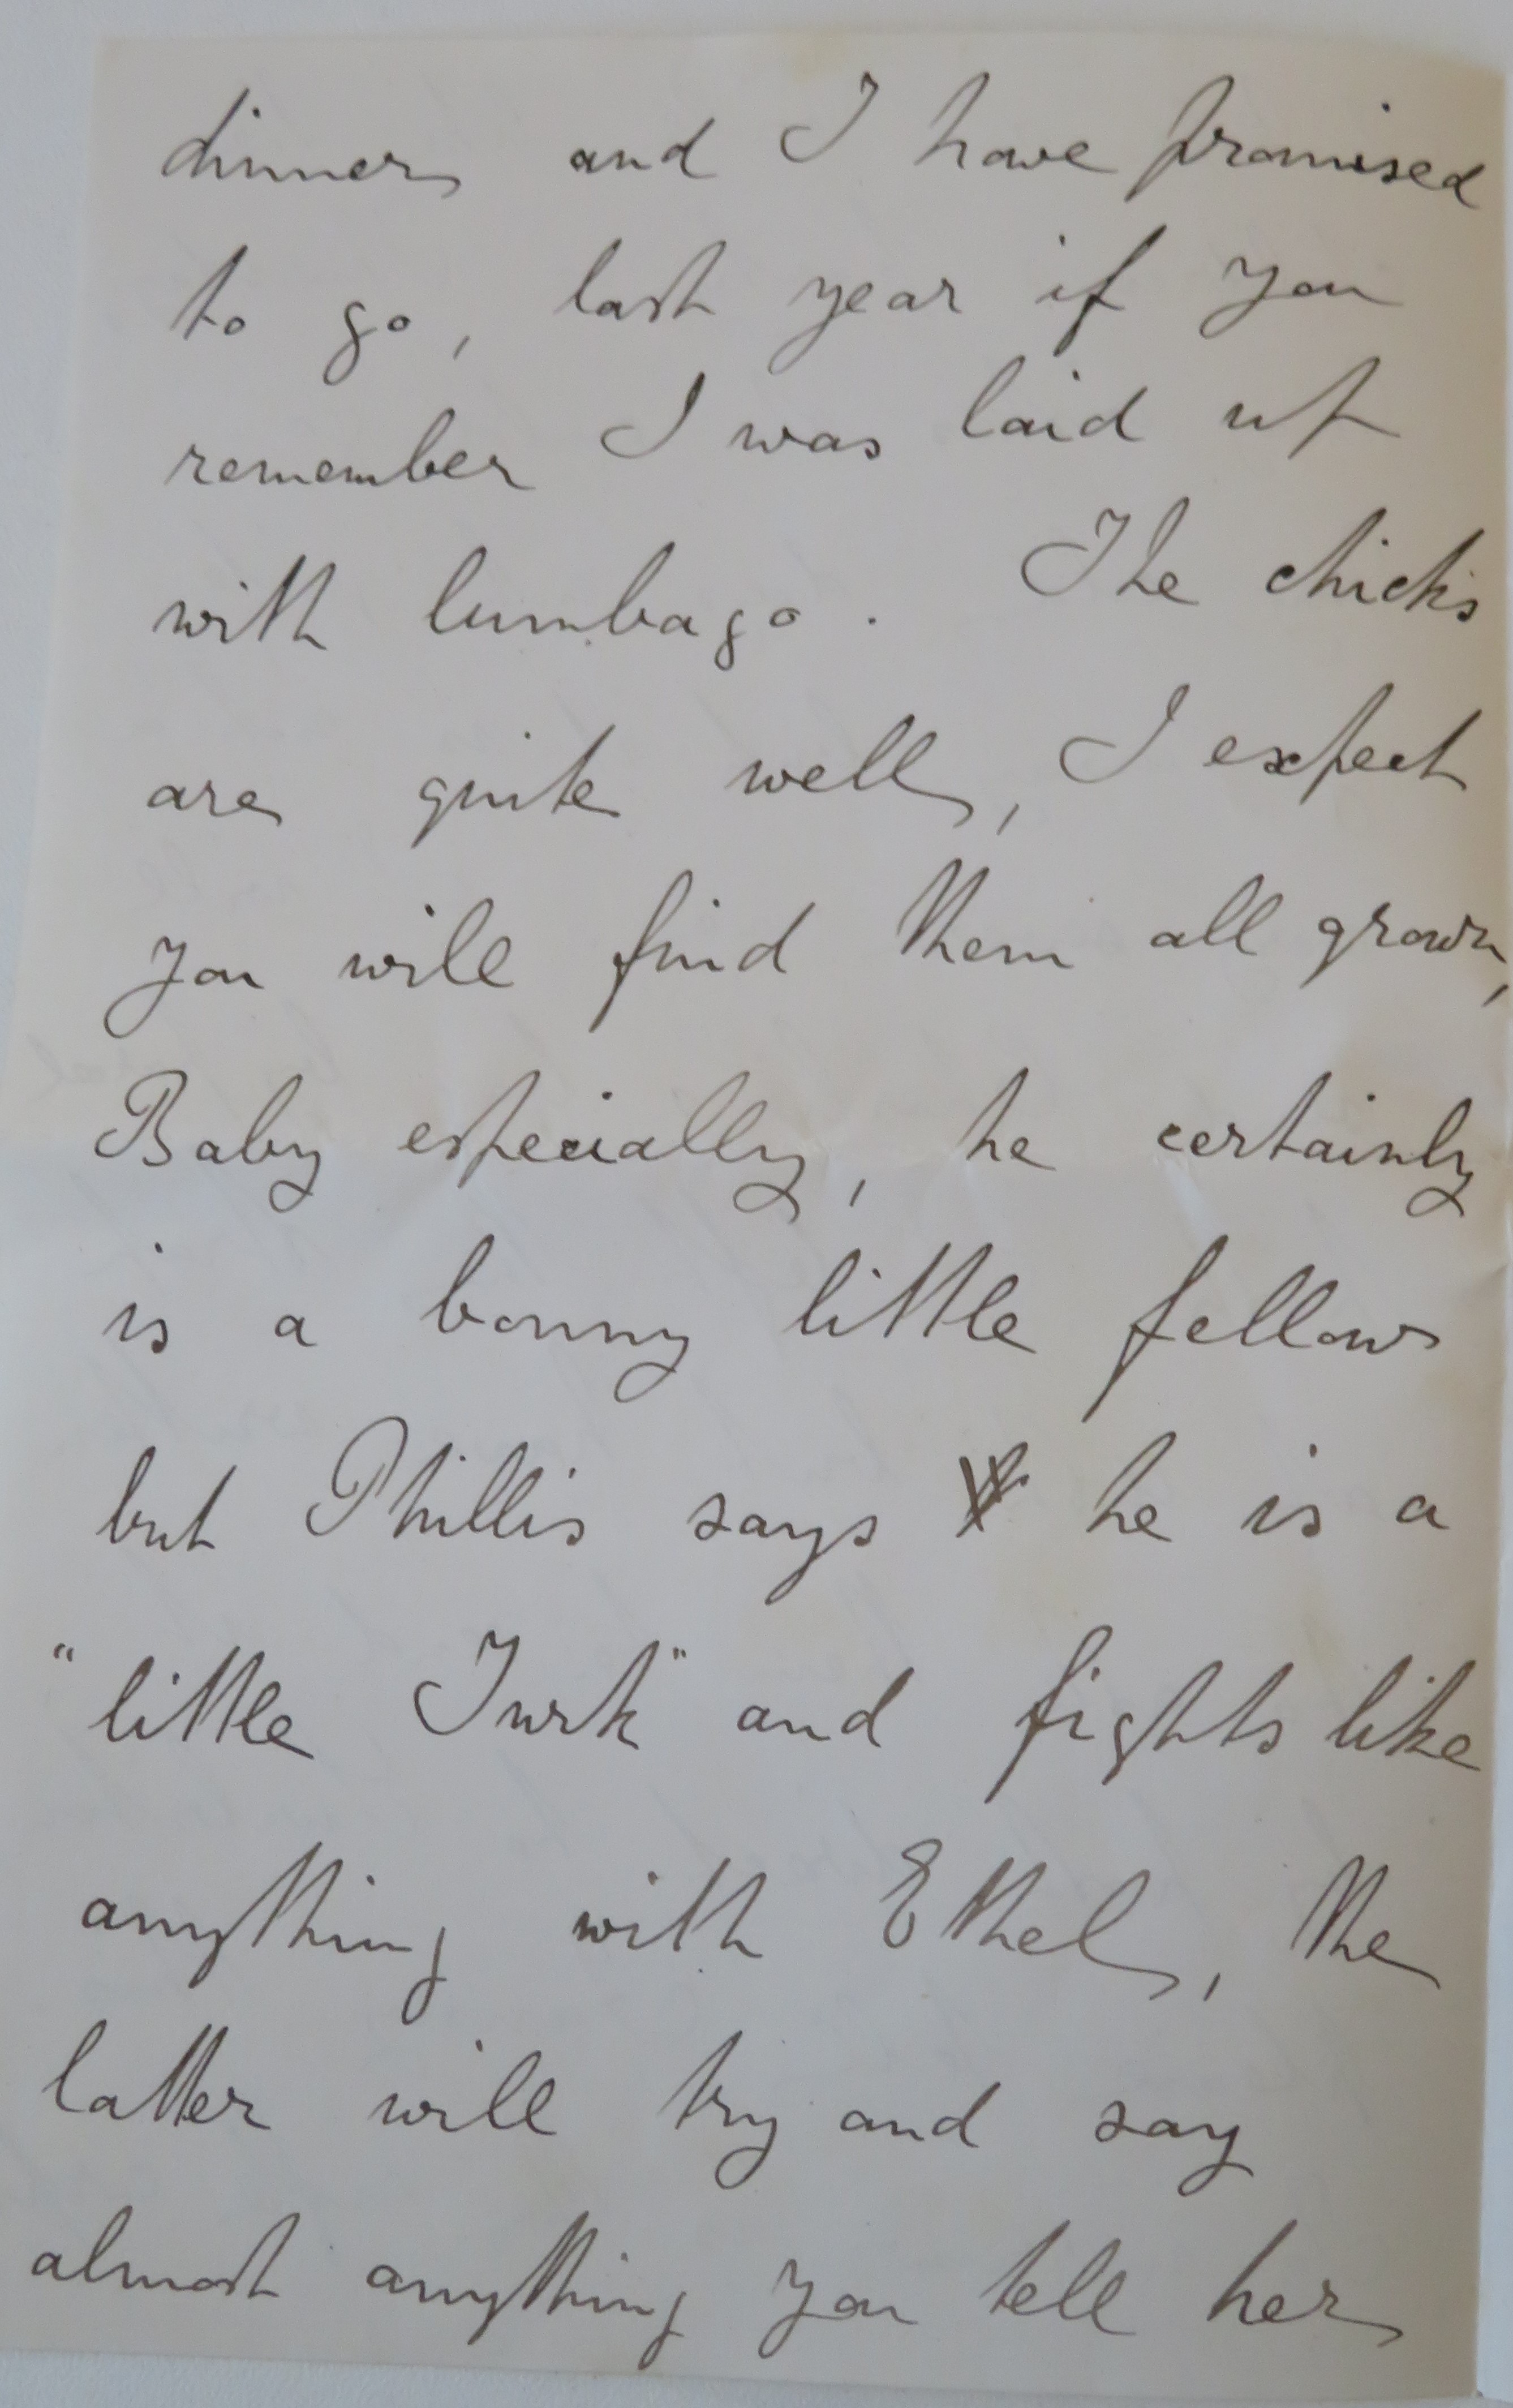 dinner and I have promised
to go, last year if you
remember I was laid up
with lumbago. The chicks
are quite well, I expect
you will find them all grown,
Baby especially, he certainly
is a bonny little fellow
but Phillis says he is a
"little Turk" and fights like
anything with Ethel, the
latter will try and say
almost anything you tell her